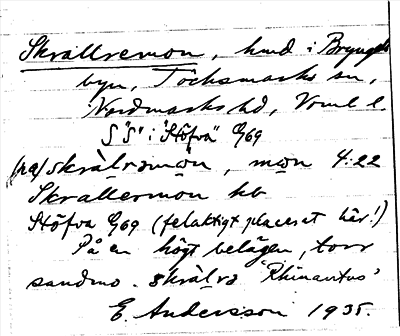 Skrallremon, hmd i Bryngels
byn, Töcksmarks sn,
Nordmarks hd, Vrml l.
S "S" i "Stöfva" G69
(pa) skràlrəmo̤n, mo̤n 4:22
Skrallermon kb
Stöfva G69 (felaktigt placerat här!)
På en högt belägen, torr
sandmo. skràlrə 'Rhinantus'
E. Andersson 1935.